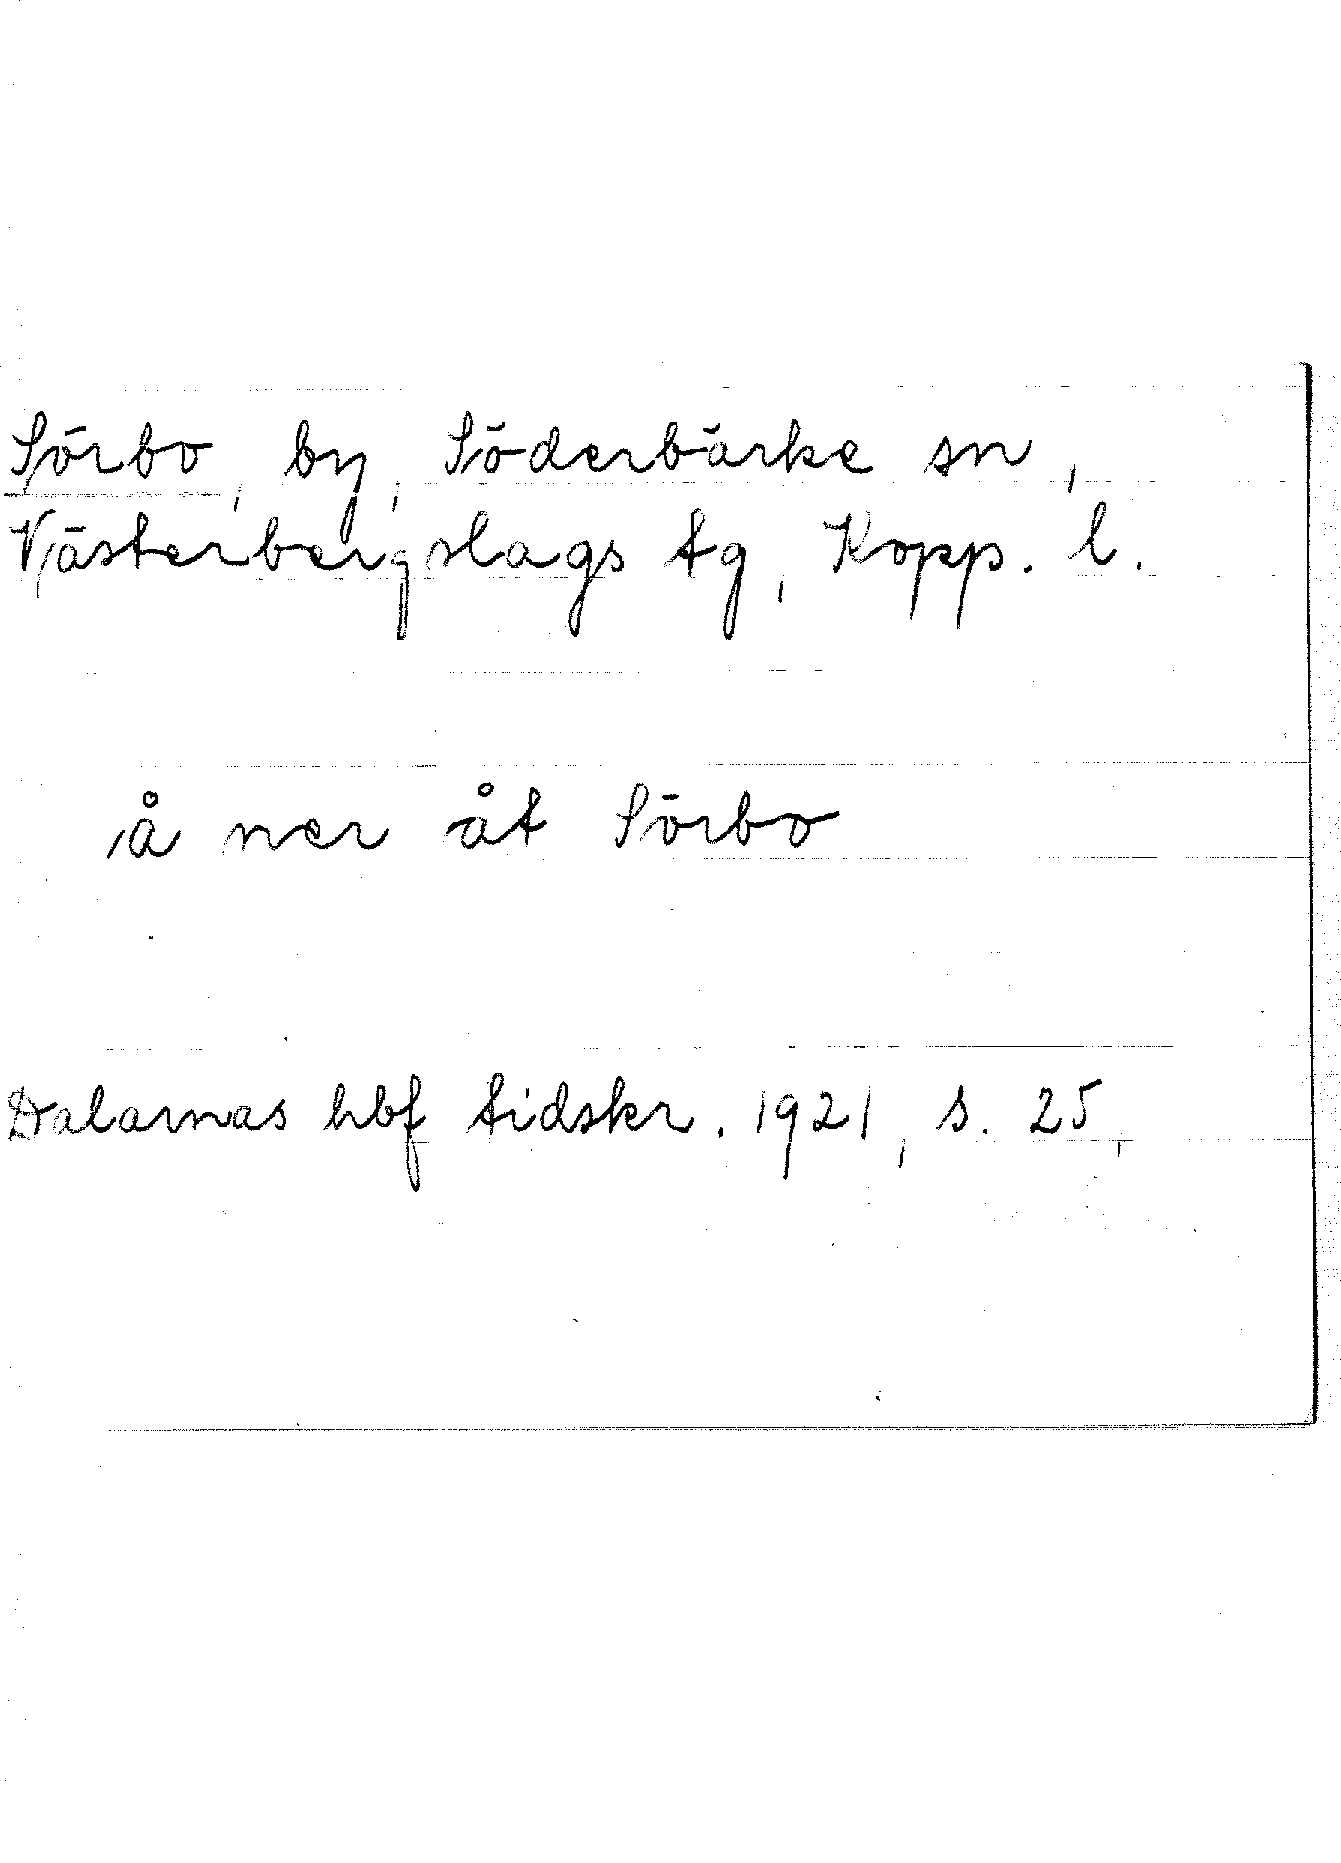 Sörbo, by, Söderbärke sn,
Västerbergslags tg, Kopp. l.
å ner åt Sörbo
Dalarnas hbf tidskr. 1921, s. 25,